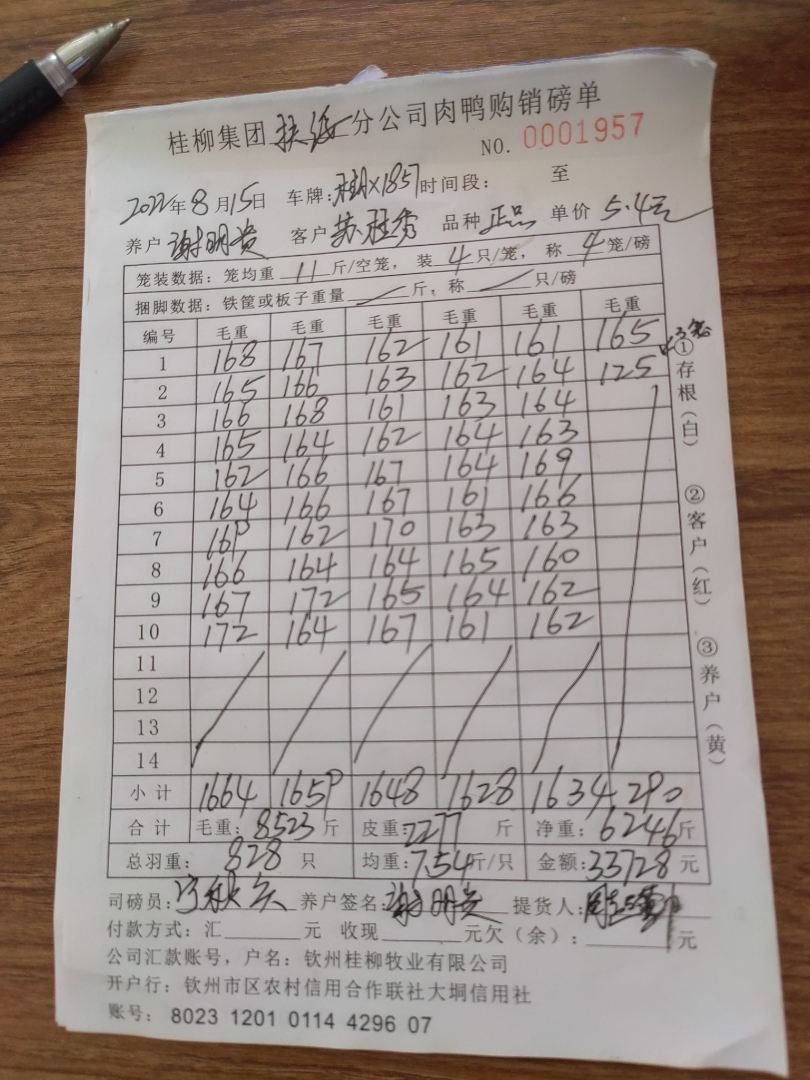 桂柳集团扶绥分公司肉鸭购销磅单
NO. 0001957
2022年8月15日 车牌:桂A×1857 时间段: 至
养户 谢明贵 客户 苏桂秀 品种 正品 单价 5.4元
笼装数据:笼均重 11 斤/空笼,装 4 只/笼,称 4 笼/磅
捆脚数据:铁筐或板子重量 斤,称 只/磅
编号 毛重 毛重 毛重 毛重 毛重 毛重
1 168 167 162 161 161 165
2 165 166 163 162 164 125 ×3笼
3 166 168 161 163 164
4 165 164 162 164 163
5 162 166 167 164 169
6 164 166 167 161 166
7 169 162 170 163 163
8 166 164 164 165 160
9 167 172 165 164 162
10 172 164 167 161 162
11
12
13
14
小计 1664 1659 1648 1628 1634 290
合计 毛重:8523斤 皮重:2277 斤 净重:6246斤
总羽重: 828 只 均重:7.54斤/只 金额:33728元
司磅员: 养户签名:谢明贵 提货人:
付款方式:汇 元 收现 元欠(余): 元
公司汇款账号,户名:钦州桂柳牧业有限公司
开户行:钦州市区农村信用合作联社大垌信用社
账号: 8023 1201 0114 4296 07
①存根(白)
②客户(红)
③养户(黄)